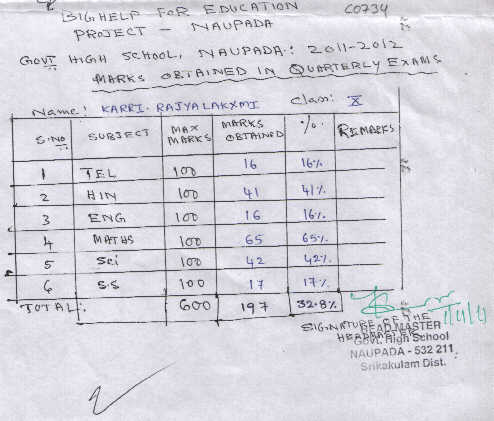 BIGHELP FOR EDUCATION C0734
PROJECT - NAUPADA
GOVT HIGH SCHOOL, NAUPADA: 2011-2012
MARKS OBTAINED IN QUARTERLY EXAMS
Name: KARRI. RAJYALAKXMI Class: X
S.NO SUBJECT MAX MARKS MARKS OBTAINED % REMARKS
1 TEL 100 16 16%
2 HIN 100 41 41%
3 ENG 100 16 16%
4 MATHS 100 65 65%
5 Sci 100 42 42%
6 S.S 100 17 17%
TOTAL: 600 197 32.8%
SIGNATURE OF THE
HEADMASTER
HEADMASTER
Govt. High School
NAUPADA - 532 211.
Srikakulam Dist.